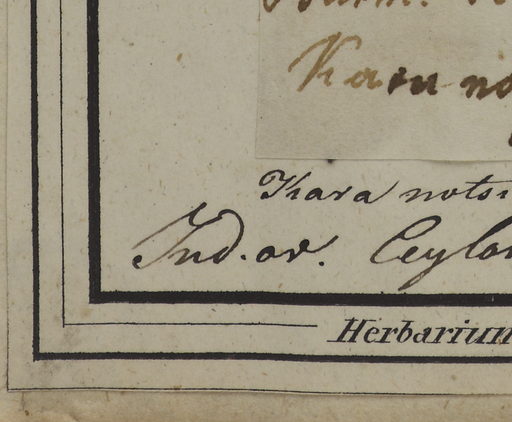 Karu no
Kara notsi
Ind. or. Ceylon
Herbarium